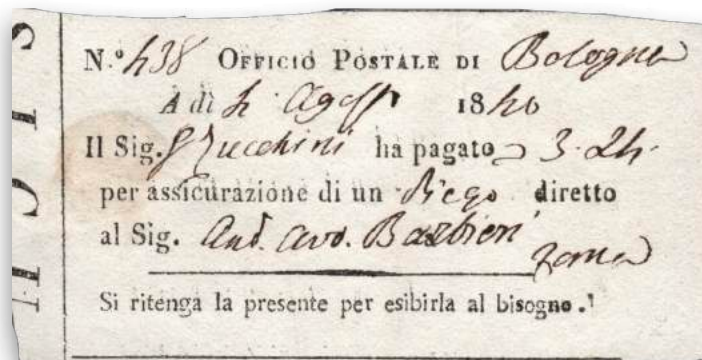 N.º 438 OFFICIO POSTALE DI Bologna
A dì 4 Agosto 1840
Il Sig. Zucchini ha pagato 3.24.
per assicurazione di un Piego diretto
al Sig. And. Avv. Barbieri
Roma
Si ritenga la presente per esibirla al bisogno.